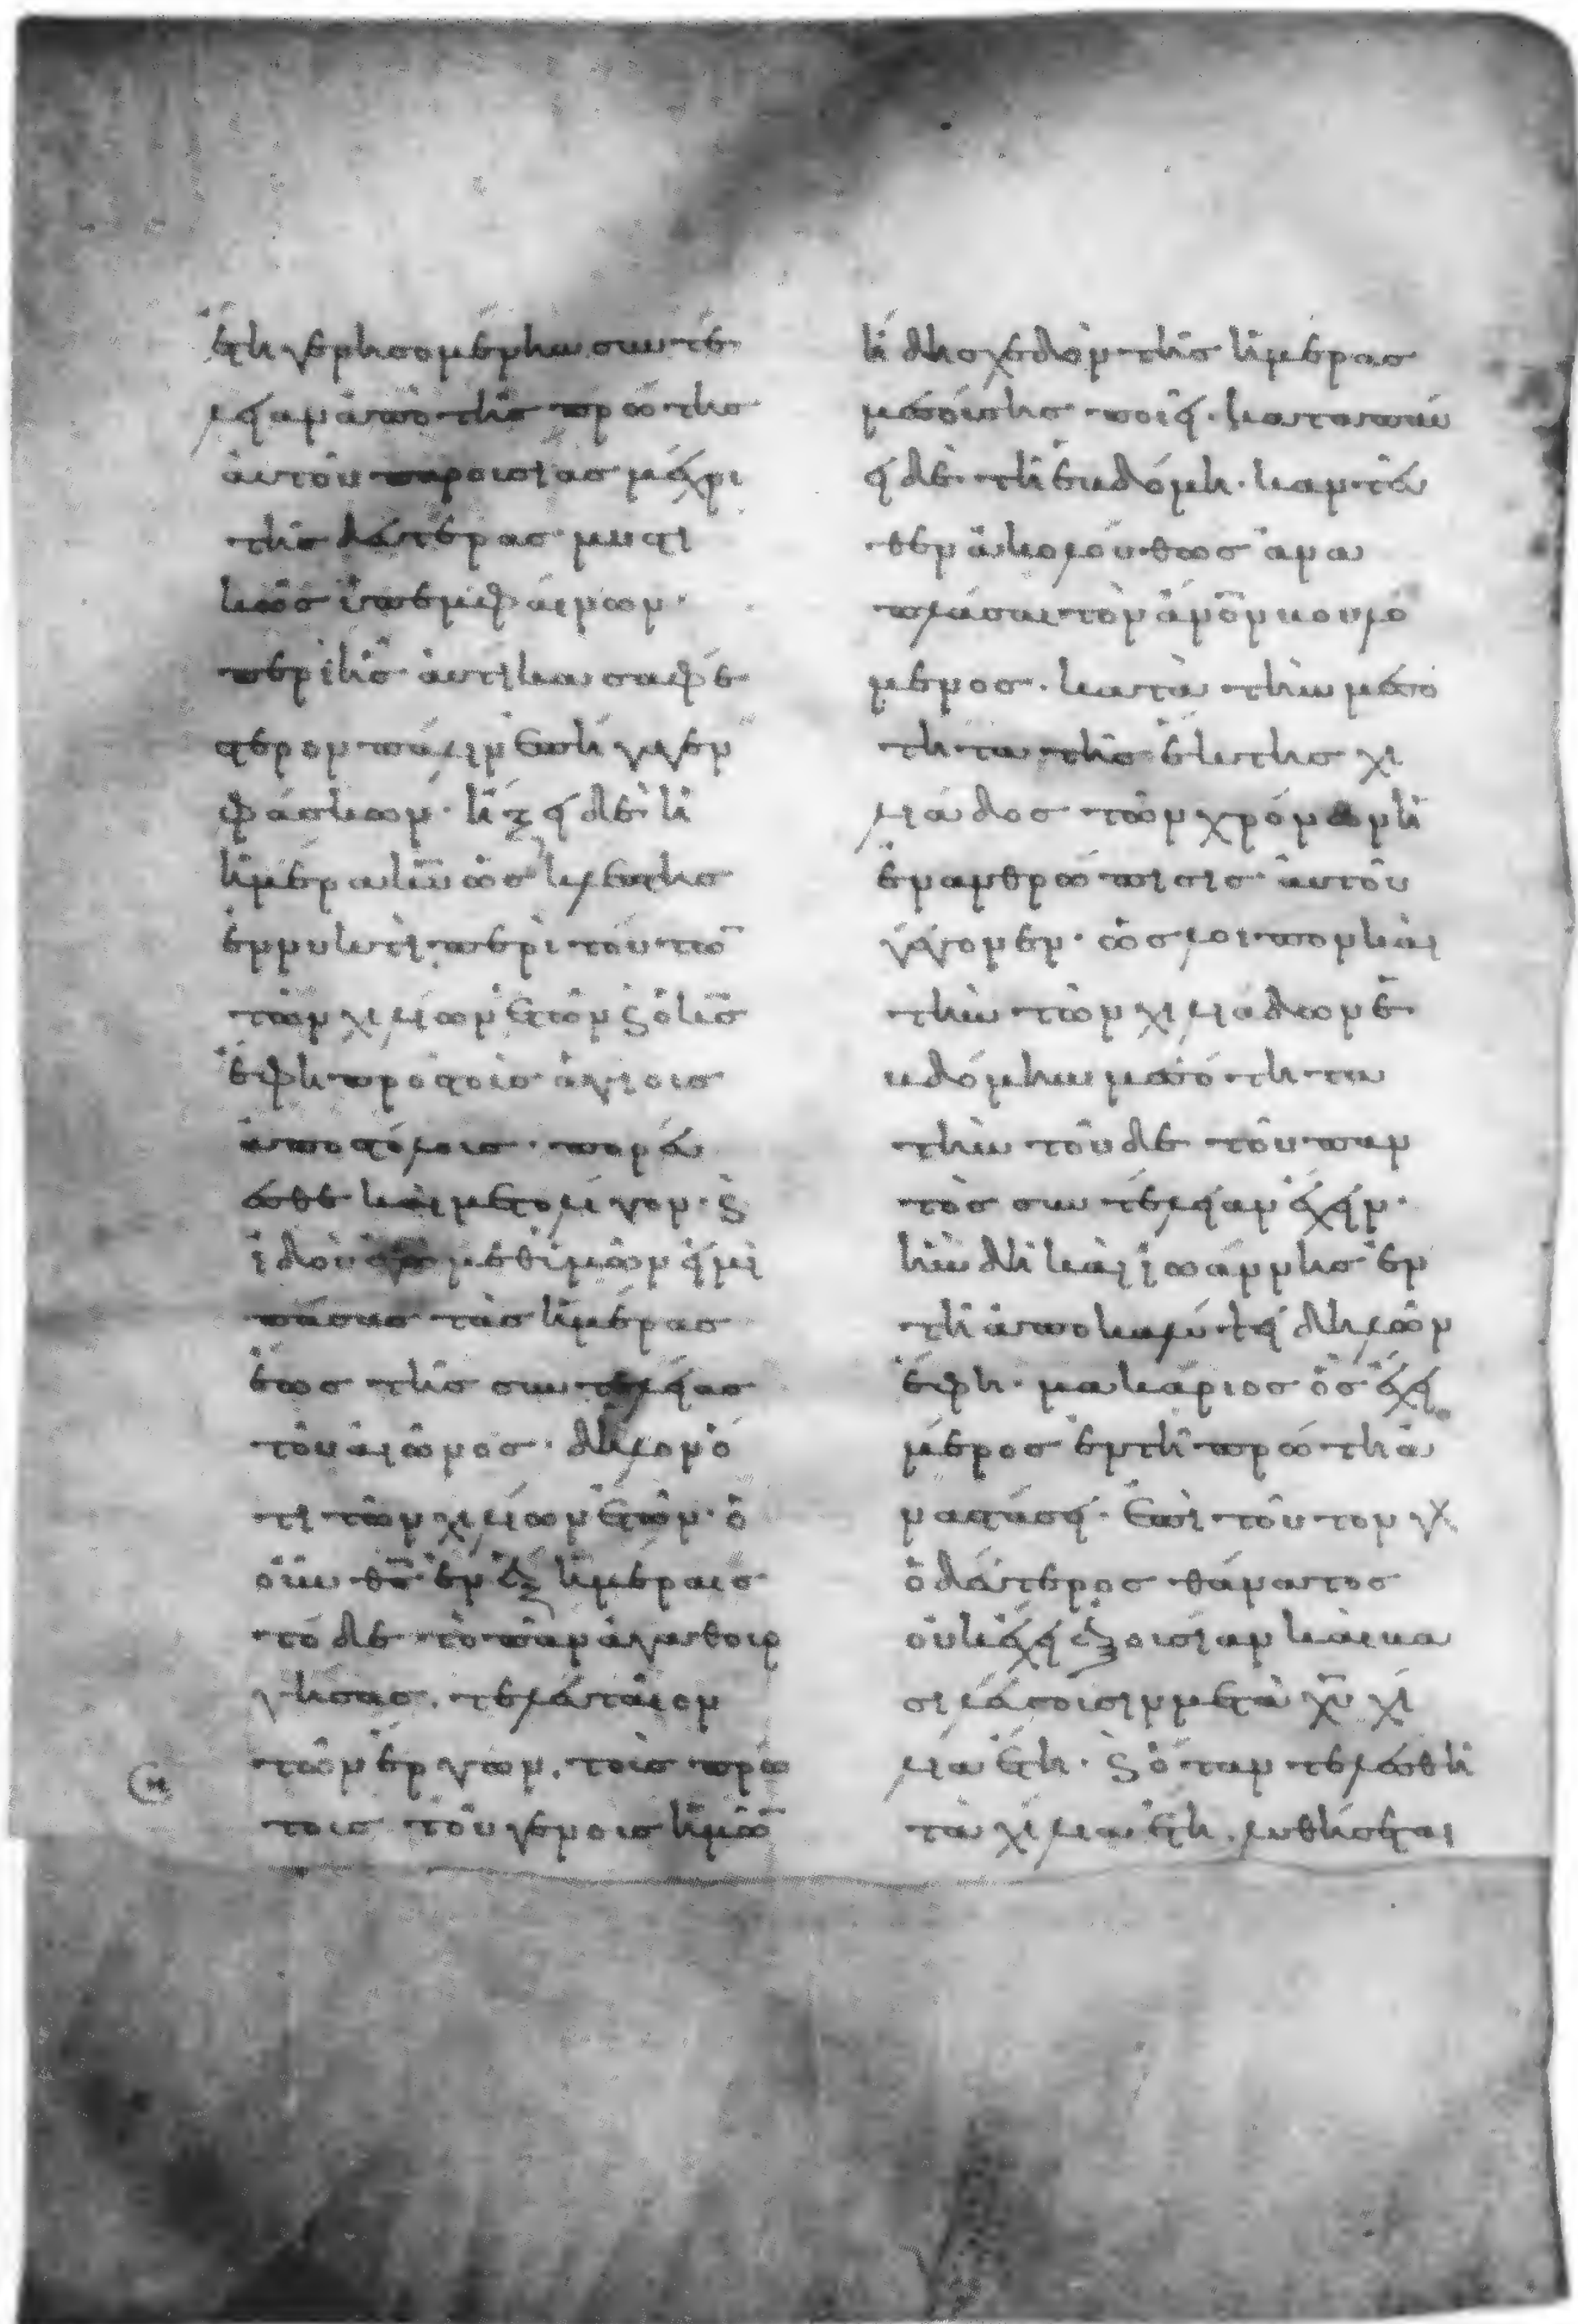 ἔτη γενησομένην συντέ
λειαν ἀπὸ τῆς πρώτης
αὐτοῦ παρουσίας μέχρι
τῆς δευτέρας μυστι
κῶς ὑπεμφαίνων·
περὶ ἧς αὐτίκα σαφέ
στερον πάλιν ἐπήγαγεν
φάσκων· ἥξει δὲ ἡ
ἡμέρα κυ ὡς κλέπτης
ἐν νυκτὶ περὶ τούτων
τῶν χιλίων ἐτῶν καὶ ὁ κς
ἔφη πρὸς τοῖς ἁγίοις
ἀποστόλοις· πορεύ
εσθε καὶ μετ' ὀλίγον· καὶ
ἰδοὺ ἐγὼ μεθ' ἡμῶν εἰμὶ
πάσας τὰς ἡμέρας
ἕως τῆς συντελείας
τοῦ αἰῶνος· δῆλον ὅ
τι τῶν χιλίων ἐτῶν· ὁ
οὖν θς ἐν ἓξ ἡμέραις
τόδε τὸ πᾶν ἀγαθουρ
γήσας. τελευταῖον
τῶν ἔργων. τοῖς πρώ
τοις τοῦ γένους ἡμῶν
ἤδη σχεδὸν τῆς ἡμέρας
μεσούσης ποιεῖ. καταπαύ
ει δὲ τῇ ἑβδόμῃ. κἀντεῦ
θεν ἀκολούθως ἄρα
πλάσαι τὸν ἀνον βουλό
μενος. κατὰ τὴν μεσό
τητα τῆς ἕκτης χι
λιάδος τῶν χρόνων ἡ
ἐνανθρώπισις αὐτοῦ
γέγονεν. ὡς λοιπὸν καὶ
τὴν τῶν χιλιάδων ἑ
βδόμην μεσότητα
τὴν τοῦδε τοῦ παν
τὸς συντέλειαν ἔχειν·
ἣν δὴ καὶ ἰωάννης ἐν
τῇ ἀποκαλύψει δηλῶν
ἔφη· μακάριος ὃς ἔχει
μέρος ἐν τῇ πρώτῃ ἀ
ναστάσει. ἐπὶ τοῦτον γὰρ
ὁ δεύτερος θάνατος
οὐκ ἔχει ἐξουσίαν καὶ βα
σιλεύουσιν μετὰ χυ χί
λια ἔτη· καὶ ὅταν τελεσθῇ
τὰ χίλια ἔτη. λυθήσεται